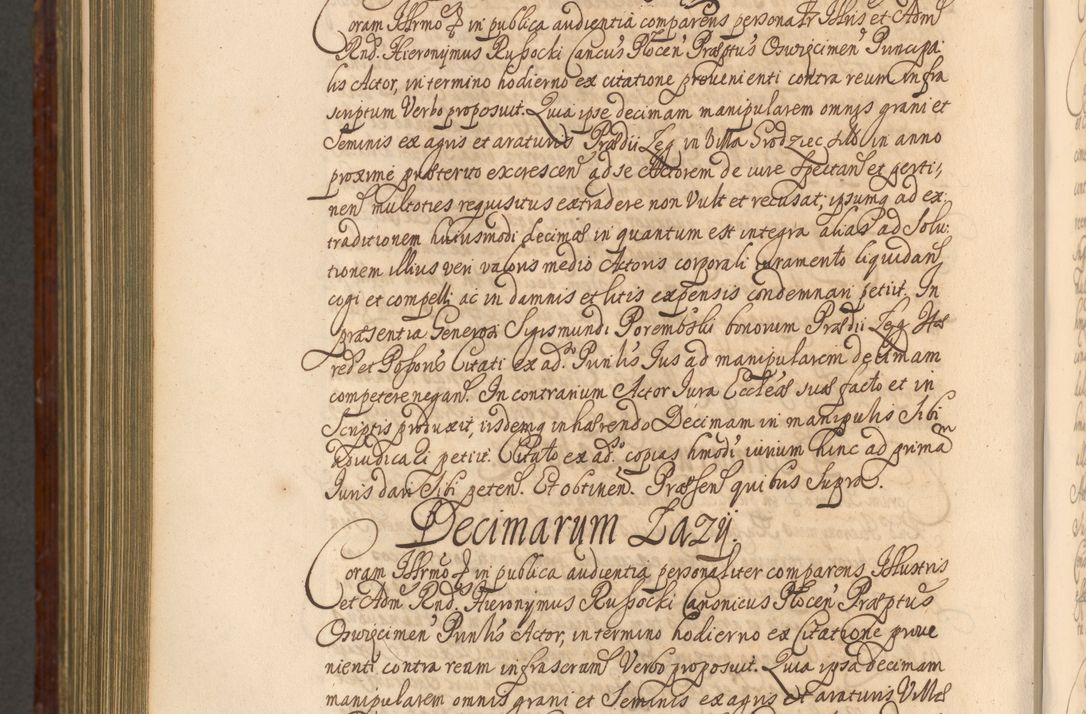 Coram Illrmo D in publica audientia comparens personalr Illris et Adm
Rnd. Hieronymus Russocki Cancus Plocen Præptus Oswięcimen Puncipa
lis Actor, in termino hodierno ex citatione provenienti contra reum infra
scriptum Verbo proposuit. Quia ipse decimam manipularem omnis grani et
Seminis ex agris et araturis Prædii Leg in Villa Grodziec in anno
proxime præterito excrescen ad se Actorem de iure spectan et perti,
nen multoties requisitus extradere non Vult et recusat, ipsumq ad ex:
traditionem huiusmodi decimæ in quantum est integra alias ad Solu:
tionem illius veri valoris medio Actoris corporali iuramento liquidan
cogi et compelli ac in damnis et litis expensis condemnari petiit. In
præsentia Generosi Sigismundi Porembski bonorum Prædii Leg Hæ
redet Possoris Citati ex ad. Punlis Ius ad manipularem decimam
competere negan. In contrarium Actor Iura Eccleæ suæ facto et in
Scriptis produxit, iisdemq inhærendo Decimam in manipulis Sibi
adiudicali petiit. Citato ex ad. copias hmodi iurium hinc ad prima
Iuris dari Sibi peten. Et obtinen. Præsen quibus Supra.
Decimarum Łazy.
Coram Illrmo D in publica audientia personaliter comparens Illustris
et Adm Rnd. Hieronymus Russocki Canonicus Plocen Præptus
Oswięcimen Punlis Actor, in termino hodierno ex Citatione prove
nienti contra reum infrascrum Verbo proposuit. Quia ipsa decimam
manipularem omnis grani et Seminis ex agris et araturis Villæ